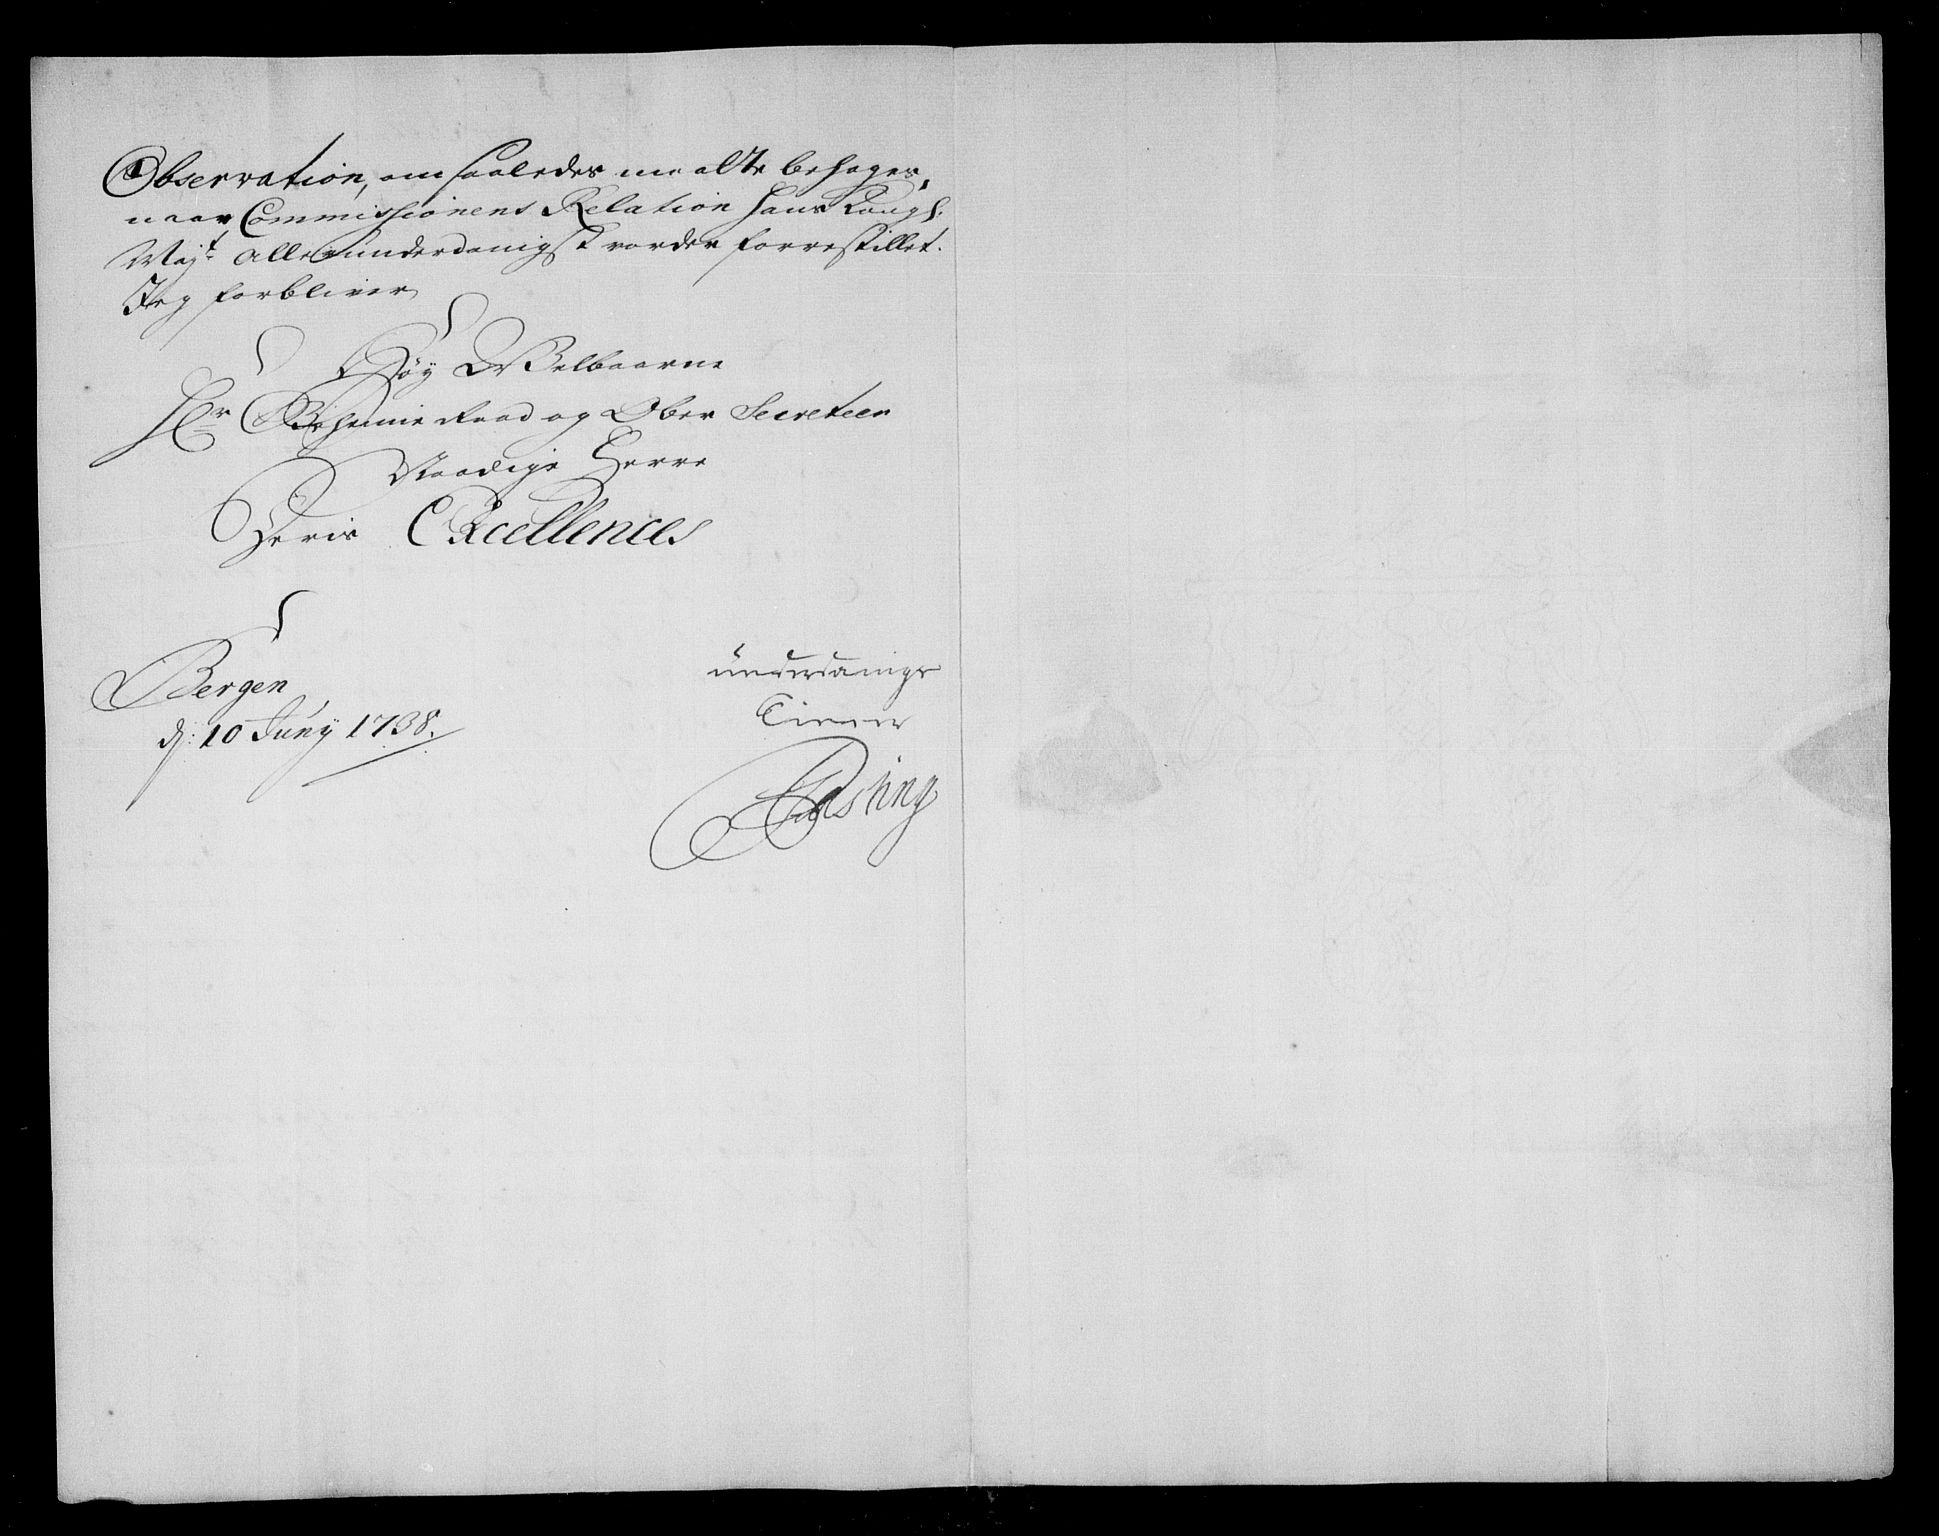 Observation, om saaledes maatte behages,
naar Commissionens Relation hans Kongl:
Mayt. allerunderdanigst vorder forrestillet.
Jeg forbliver
Høy Velbaarne
Hr Geheime Raad og Ober Secreteer
Naadige Herre
Deris Excellences
Bergen
d: 10 Juny 1738.
underdanige
Tiener